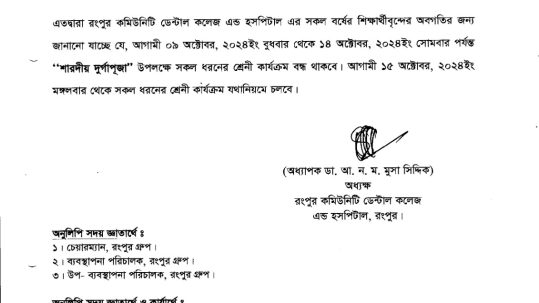 এতদ্বারা রংপুর কমিউনিটি ডেন্টাল কলেজ এন্ড হসপিটাল এর সকল বর্ষের শিক্ষার্থীবৃন্দের অবগতির জন্য
জানানো যাচ্ছে যে, আগামী ০৯ অক্টোবর, ২০২৪ইং বুধবার থেকে ১৪ অক্টোবর, ২০২৪ইং সোমবার পর্যন্ত
“শারদীয় দুর্গাপূজা” উপলক্ষে সকল ধরনের শ্রেনী কার্যক্রম বন্ধ থাকবে। আগামী ১৫ অক্টোবর, ২০২৪ইং
মঙ্গলবার থেকে সকল ধরনের শ্রেনী কার্যক্রম যথানিয়মে চলবে।
(অধ্যাপক ডা. আ. ন. ম. মুসা সিদ্দিক)
অধ্যক্ষ
রংপুর কমিউনিটি ডেন্টাল কলেজ
এন্ড হসপিটাল, রংপুর।
অনুলিপি সদয় জ্ঞাতার্থে ঃ
১। চেয়ারম্যান, রংপুর গ্রুপ।
২। ব্যবস্থাপনা পরিচালক, রংপুর গ্রুপ।
৩। উপ- ব্যবস্থাপনা পরিচালক, রংপুর গ্রুপ।
অনুলিপি সদয় জ্ঞাতার্থে ও কার্যার্থে ঃ